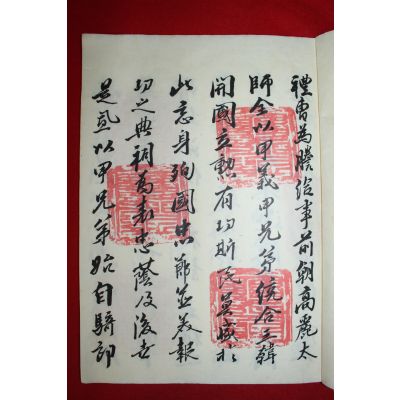 禮曹為謄給事前朝高麗太
師金以甲義甲兄弟統合三韓
開國立勳有功斯民莫盛於
此忘身殉國忠節並美報
功之典祠為表忠蔭及後世
是置以甲兄弟始自騎郎